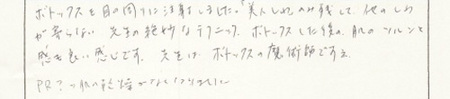 ボトックスを目の周りに注射しました。「美人しわ」のみ残して、他のしわ
が寄らない 先生の絶妙なテクニック。ボトックスした後の、肌のツルンと
感も良い感じです。先生は、ボトックスの魔術師ですネ。
肌の乾燥がなくなりました